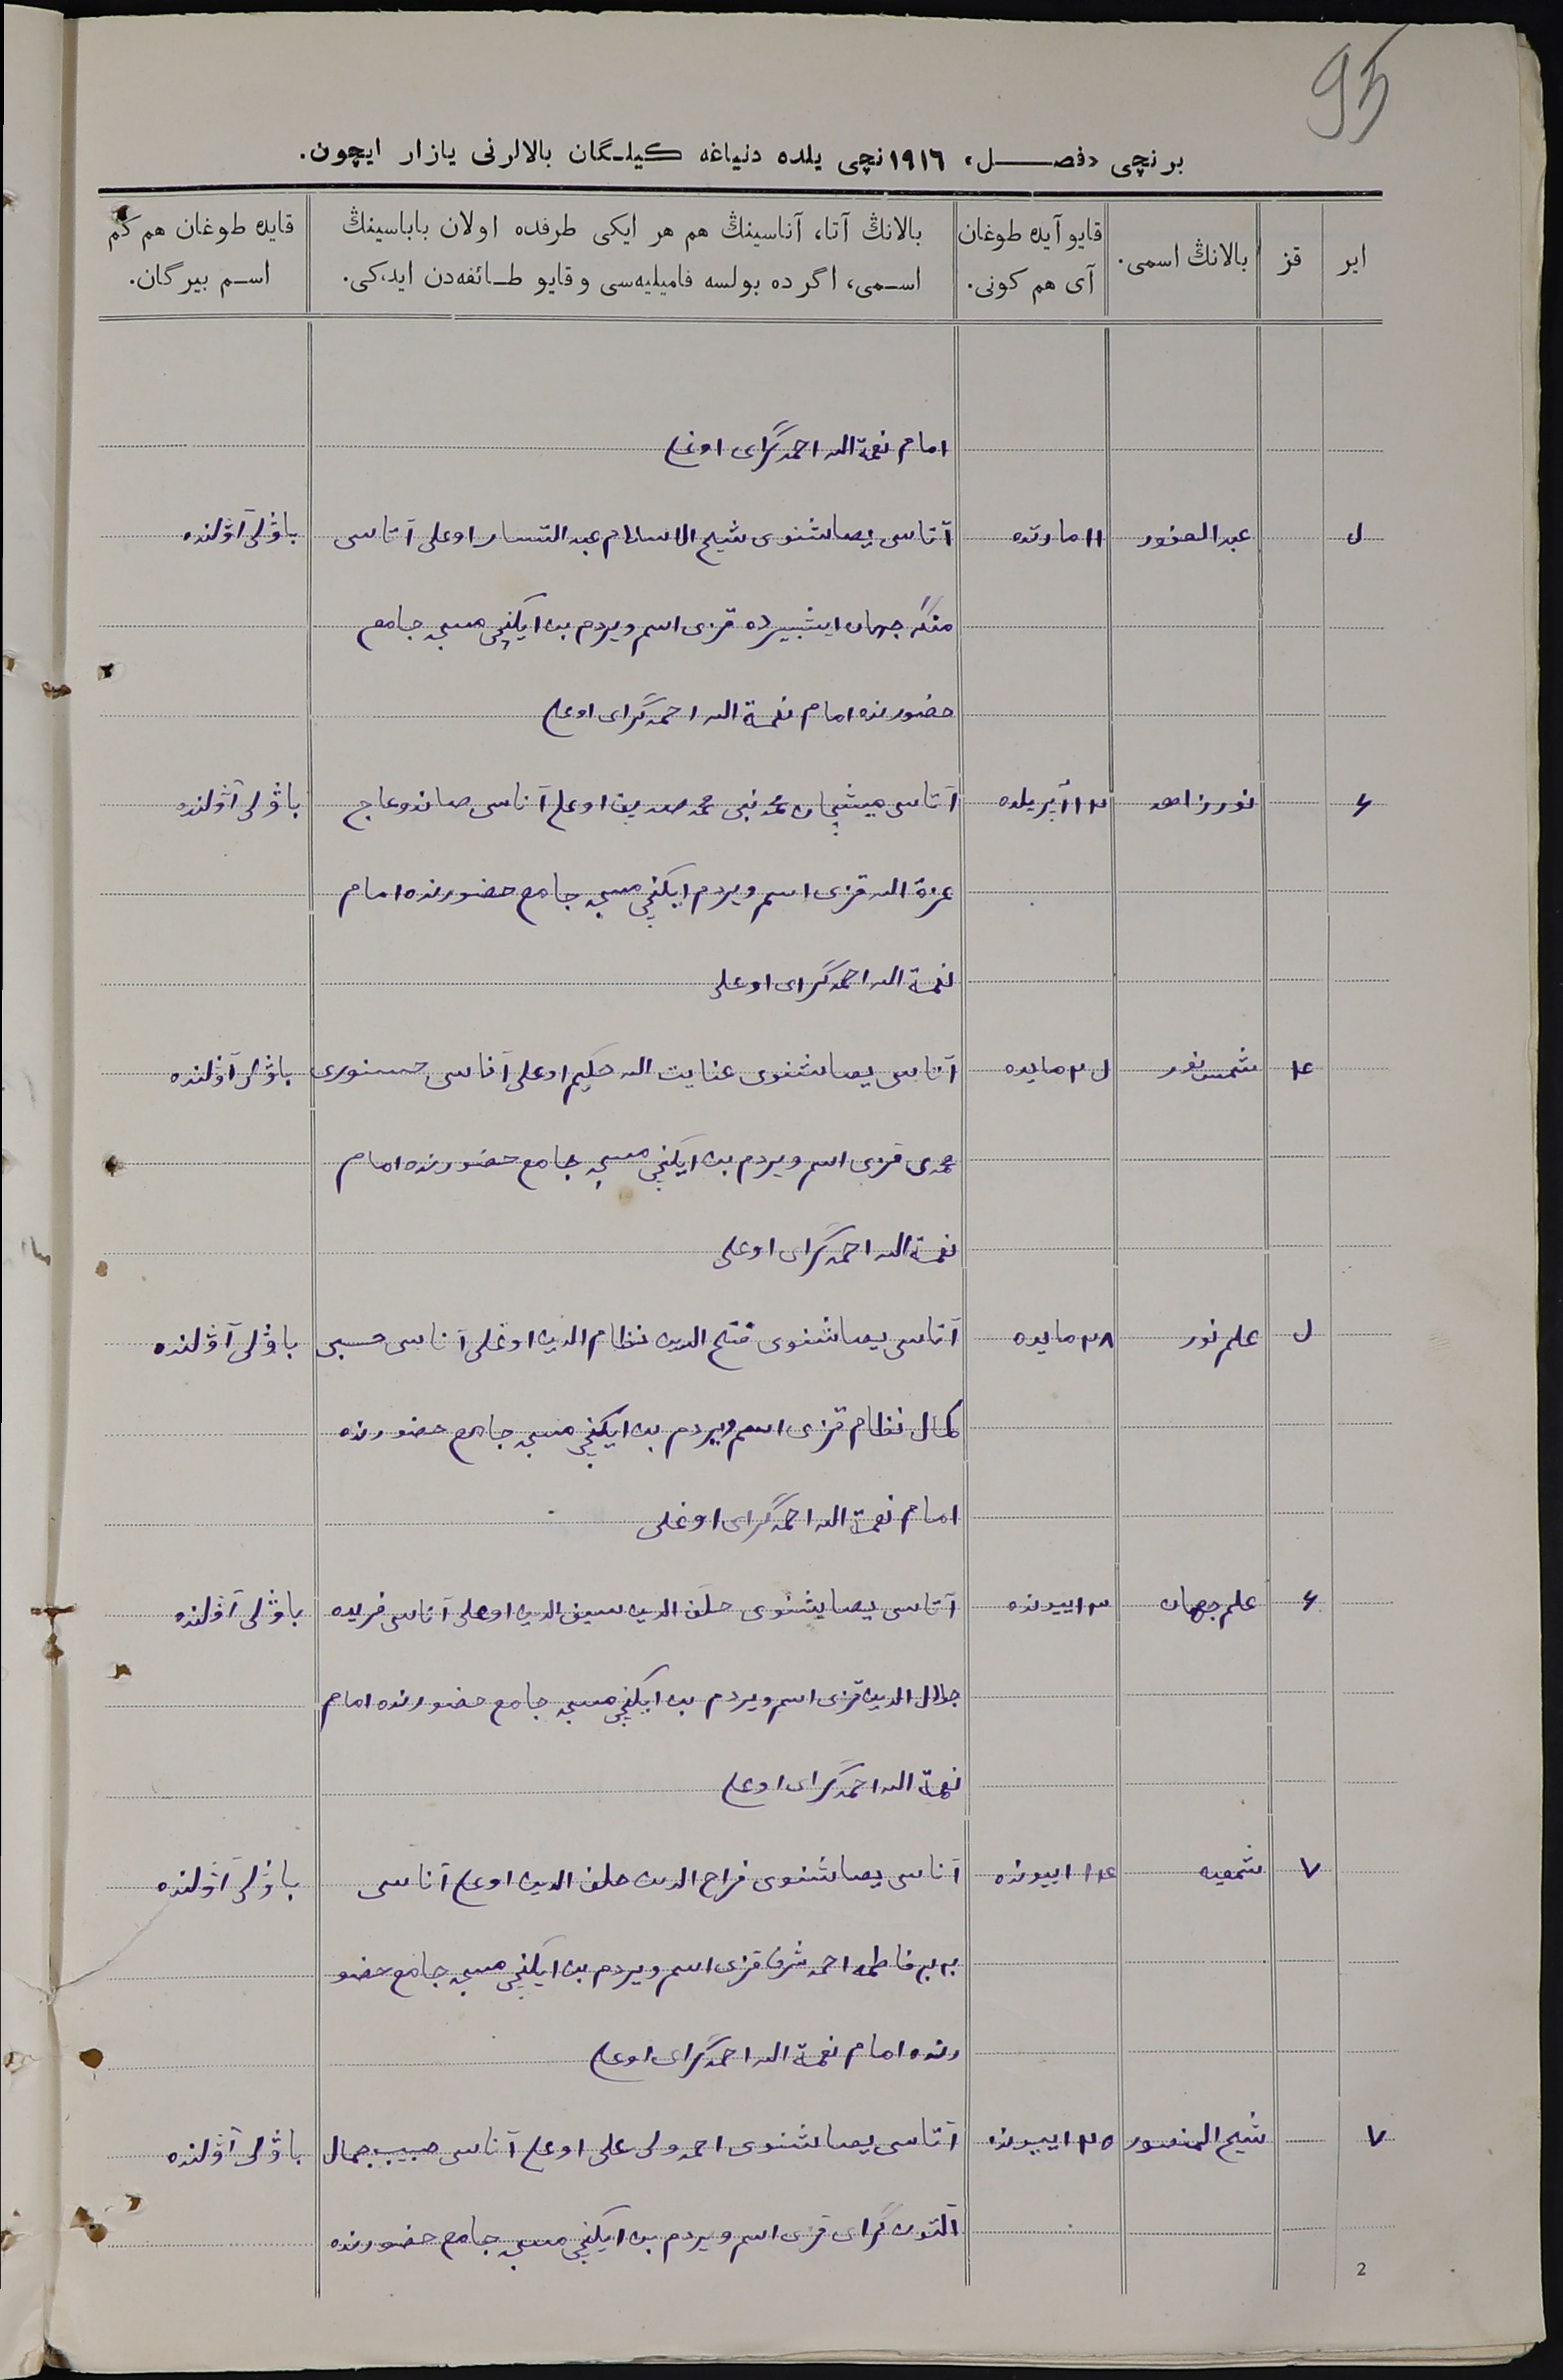 95
برنچی «فصل» ١٩١٦نچی یلده دنیاغه كیلگان بالالرنی یازار ایچون.
ایر
قز
بالانڭ اسمی.
قایو آیده طوغان
آی هم كونی.
بالانڭ آتا، آناسینڭ هم هر ایكی طرفده اولان باباسینڭ
اسمی، اگر ده بولسه فامیلیه‌سی و قایو طائفه‌دن ایدكی.
قایده طوغان هم كم
اسم بیرگان.
امام نعمة الله احمدگرای اوغلی
عبدالغفور ١١ مارتده آتاسی یصاشنوی شیخ الاسلام عبدالستار اوغلی آناسی باۋلی آۋلنده
جهان قزی اسم ویردم بن ایكنچی مسجد جامع
حضورنده امام نعمة الله احمدگرای اوغلی
١٣ آپریلده آتاسی میشچان محمد نبی محمد صدیق اوغلی آناسی صاندوغاچ باۋلی آۋلنده
عزة الله قزی اسم ویردم ایكنچی مسجد جامع حضورنده امام
نعمة الله احمدگرای اوغلی
شمس نور مایده آتاسی یصاشنوی عنایت الله حكیم اوغلی آناسی حسنوری باۋلی آۋلنده
محمدی قزی اسم ویردم بن ایكنچی مسجد جامع حضورنده امام
نعمة الله احمدگرای اوغلی
علم نور ٢٨ مایده آتاسی یصاشنوی فتح الدین نظام الدین اوغلی آناسی حسبی باۋلی آۋلنده
كمال نظام قزی اسم ویردم بن ایكنچی مسجد جامع حضورنده
امام نعمة الله احمدگرای اوغلی
علم جهان ٣ اییونده آتاسی یصایشنوی خلف الدین سیف الدین اوغلی آناسی فریده باۋلی آۋلنده
جلال الدین قزی اسم ویردم بن ایكنچی مسجد جامع حضورنده امام
نعمة الله احمدگرای اوغلی
٧ شمعیه ١٤ اییونده آتاسی یصاشنوی فراح الدین خلف الدین اوغلی آناسی باۋلی آۋلنده
بی بی فاطمه احمد شرف قزی اسم ویردم بن ایكنچی مسجد جامع حضو
رنده امام نعمة الله احمدگرای اوغلی
٧ شیخ المنصور ٢٥ اییونده آتاسی یصاشنوی احمد ولی علی اوغلی آناسی حبیب جمال باۋلی آۋلنده
آلتون گرای قزی اسم ویردم بن ایكنچی مسجد جامع حضورنده
2